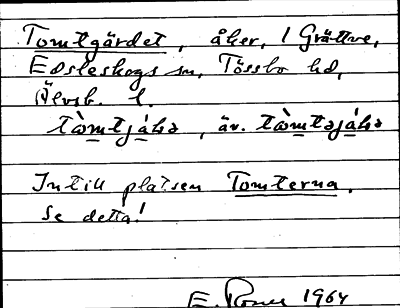 Tomtgärdet, åker, 1 Grättve,
Edsleskogs sn, Tössbo hd,
Älvsb. l.
tòmtjáhə, äv. tòmtəjáhə
Intill platsen Tomterna.
Se detta!
E. 1964